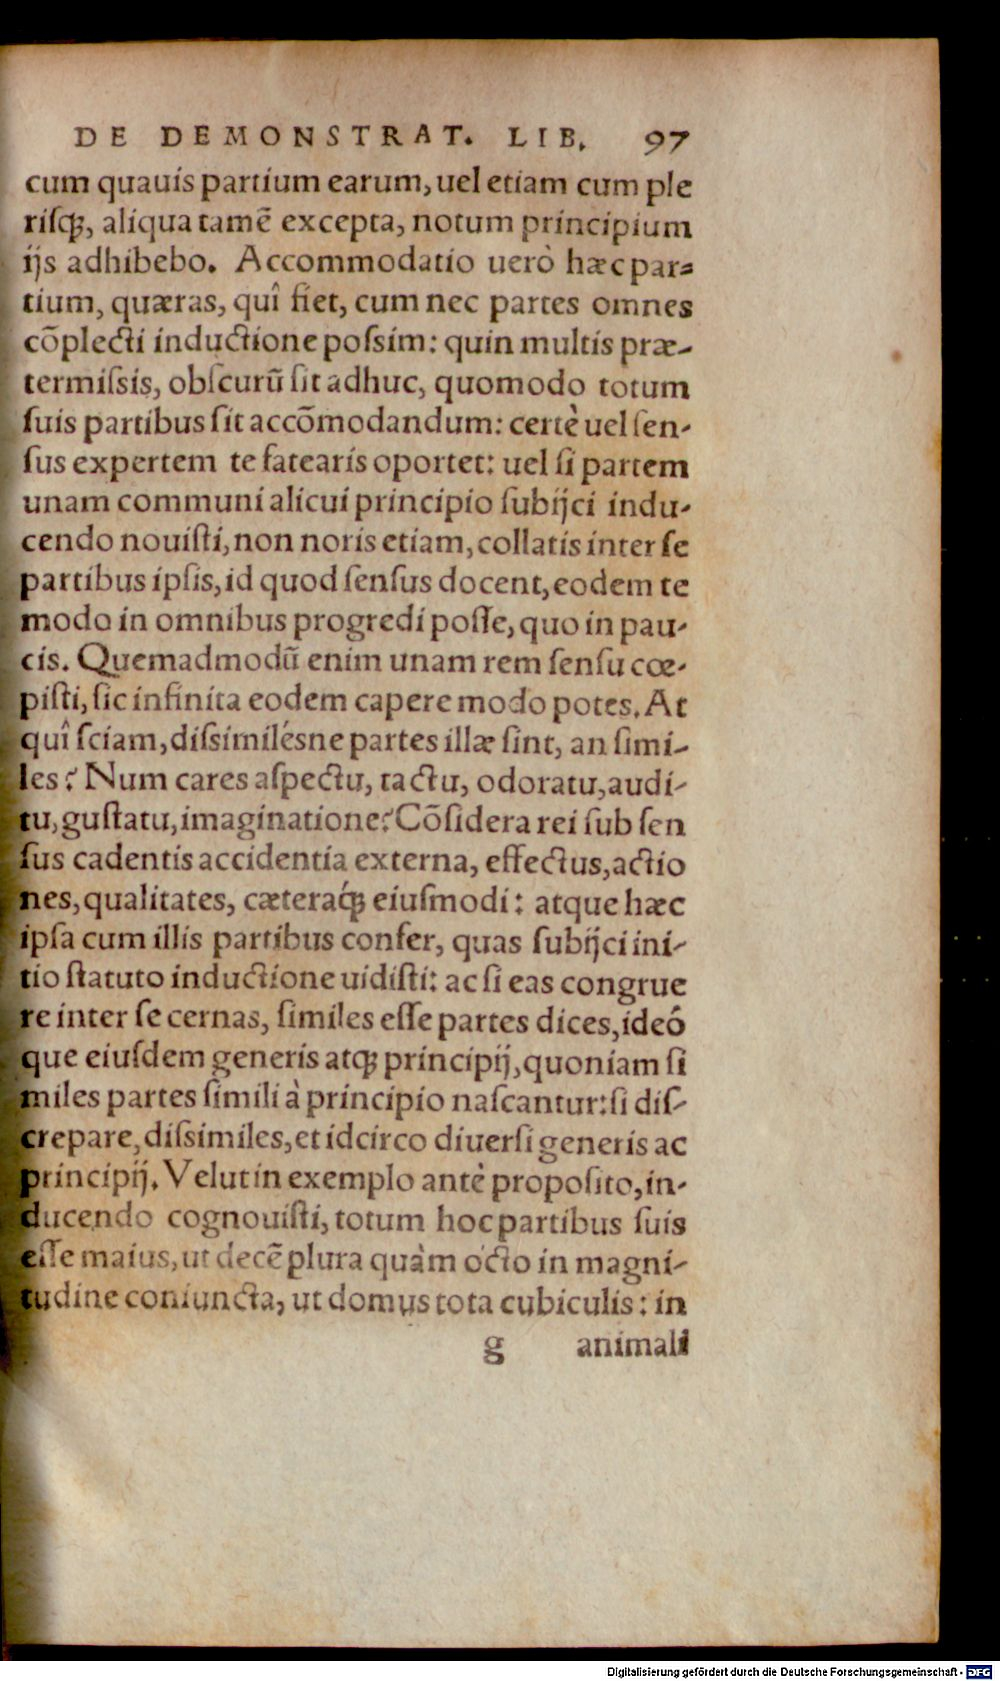 DE DEMONSTRAT. LIB. 97
cum quauis partium earum, uel etiam cum ple
riſqꝫ, aliqua tamē excepta, notum principium
ijs adhibebo. Accommodatio uerò hæc par-
tium, quæras, quî fiet, cum nec partes omnes
cōplecti inductione poſsim: quin multis præ-
termiſsis, obſcurũ ſit adhuc, quomodo totum
ſuis partibus ſit accōmodandum: certè uel ſen-
ſus expertem te fatearis oportet: uel ſi partem
unam communi alicui principio ſubijci indu-
cendo nouiſti, non noris etiam, collatis inter ſe
partibus ipſis, id quod ſenſus docent, eodem te
modo in omnibus progredi poſſe, quo in pau-
cis. Quemadmodũ enim unam rem ſenſu cœ-
piſti, ſic infinita eodem capere modo potes. At
quî ſciam, diſsimilésne partes illæ ſint, an ſimi-
les? Num cares aſpectu, tactu, odoratu, audi-
tu, guſtatu, imaginatione? Cōſidera rei ſub ſen
ſus cadentis accidentia externa, effectus, actio
nes, qualitates, cæteraq́ꝫ eiuſmodi: atque hæc
ipſa cum illis partibus confer, quas ſubijci ini-
tio ſtatuto inductione uidiſti: ac ſi eas congrue
re inter ſe cernas, ſimiles eſſe partes dices, ideó
que eiuſdem generis atqꝫ principij, quoniam ſi
miles partes ſimili à principio naſcantur: ſi diſ-
crepare, diſsimiles, et idcirco diuerſi generis ac
principij. Velut in exemplo antè propoſito, in-
ducendo cognouiſti, totum hoc partibus ſuis
eſſe maius, ut decē plura quàm octo in magni-
tudine coniuncta, ut domus tota cubiculis: in
g animali
Digitalisierung gefördert durch die Deutsche Forschungsgemeinschaft - DFG